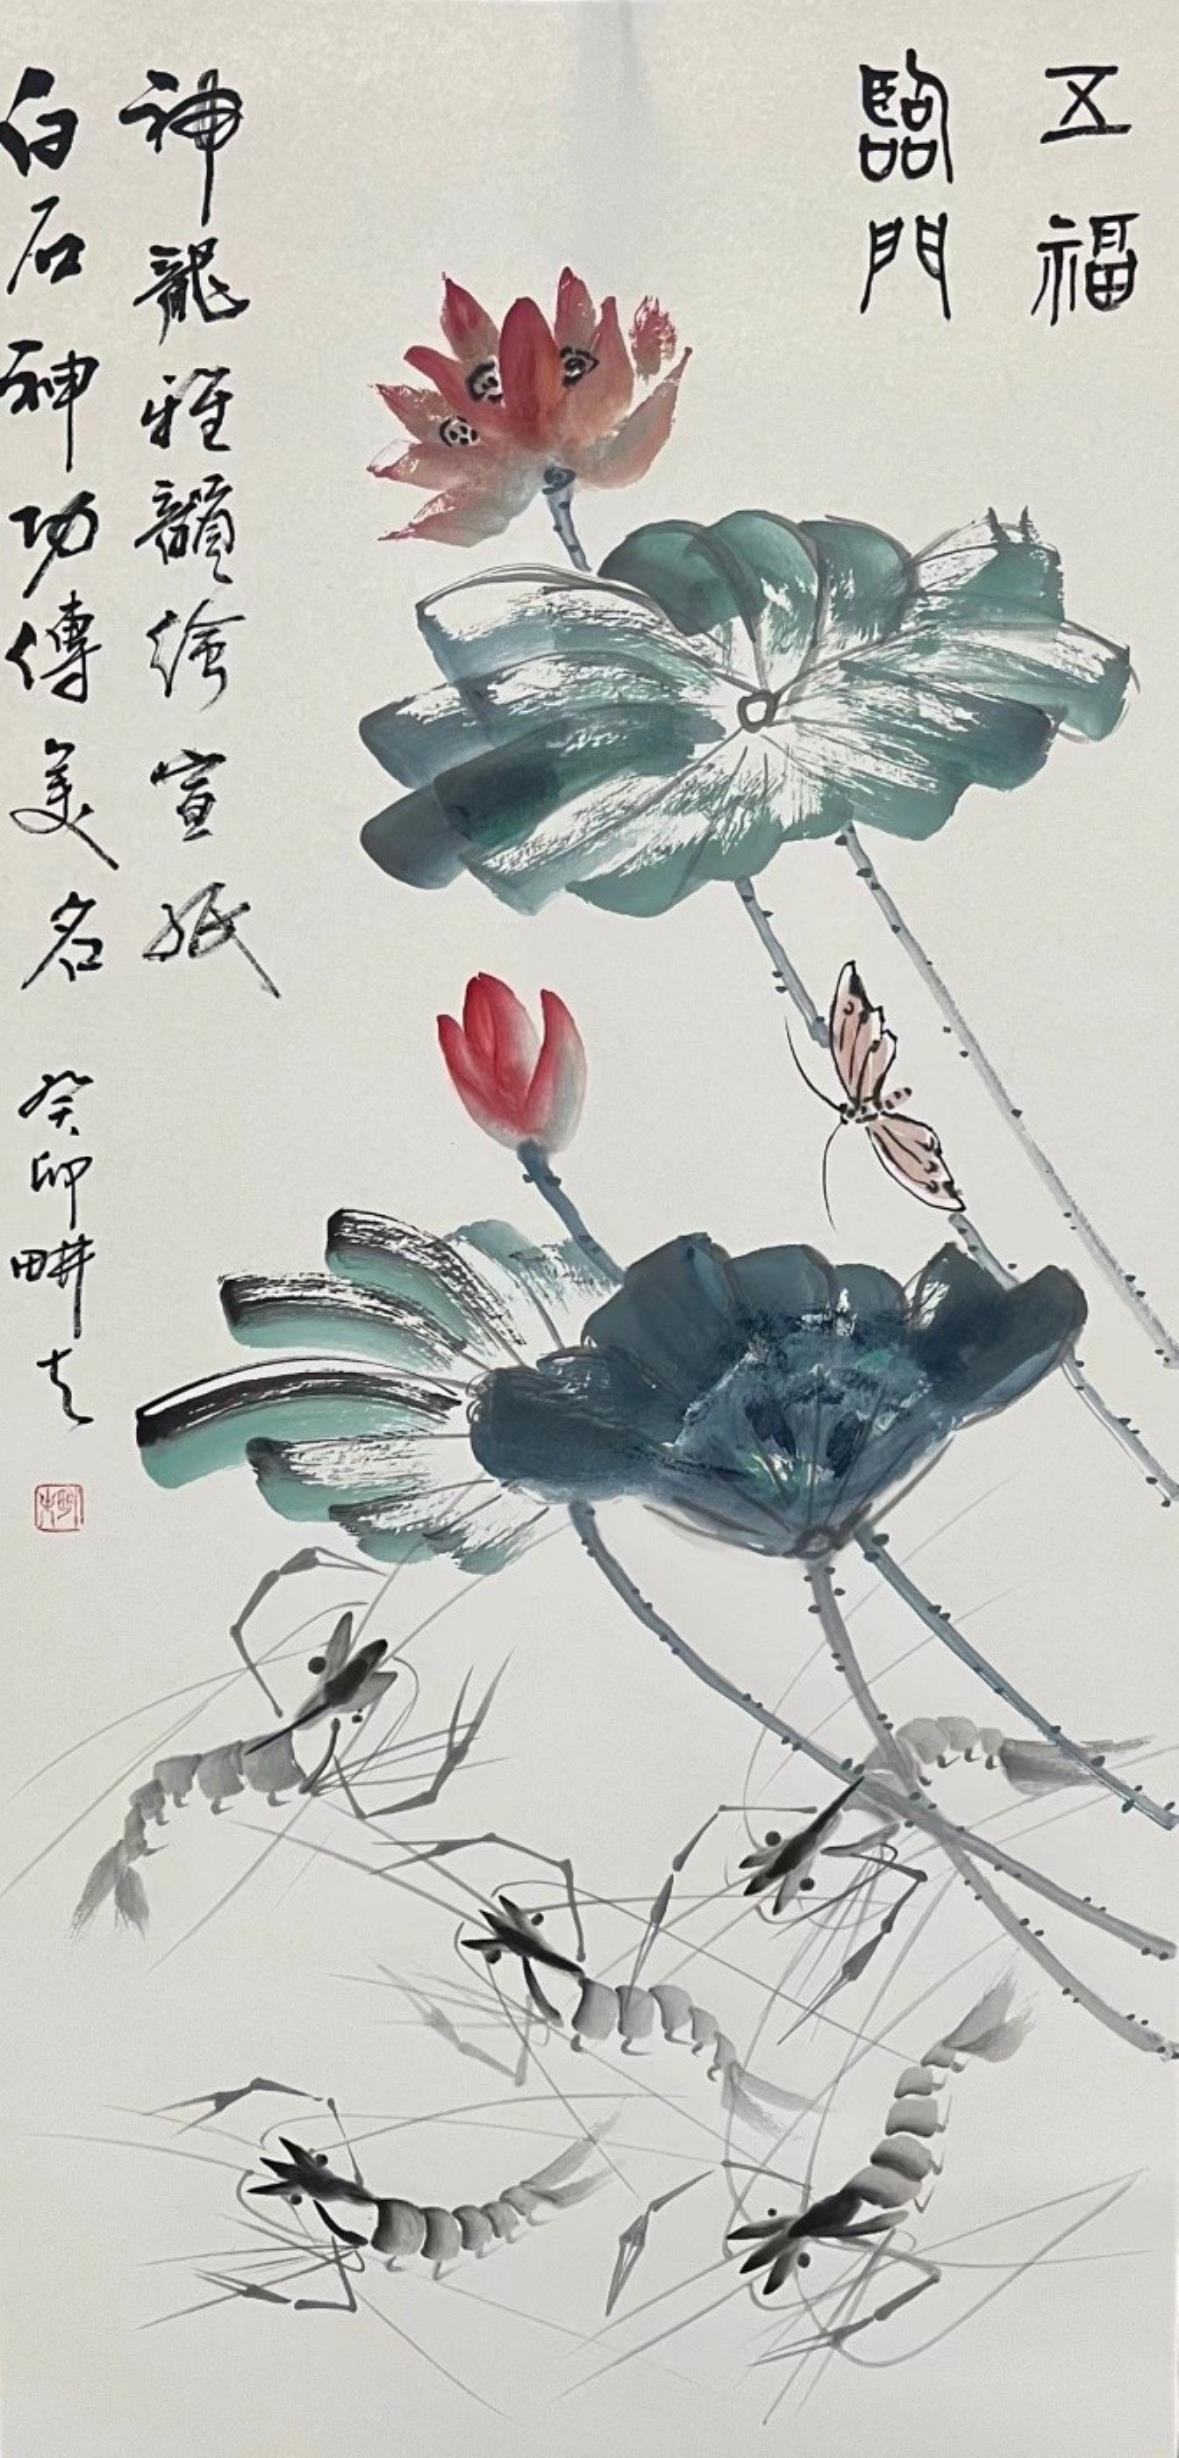 五福
臨門
神龍雅韻繪宣紙
白石神功傳美名
癸卯畊夫